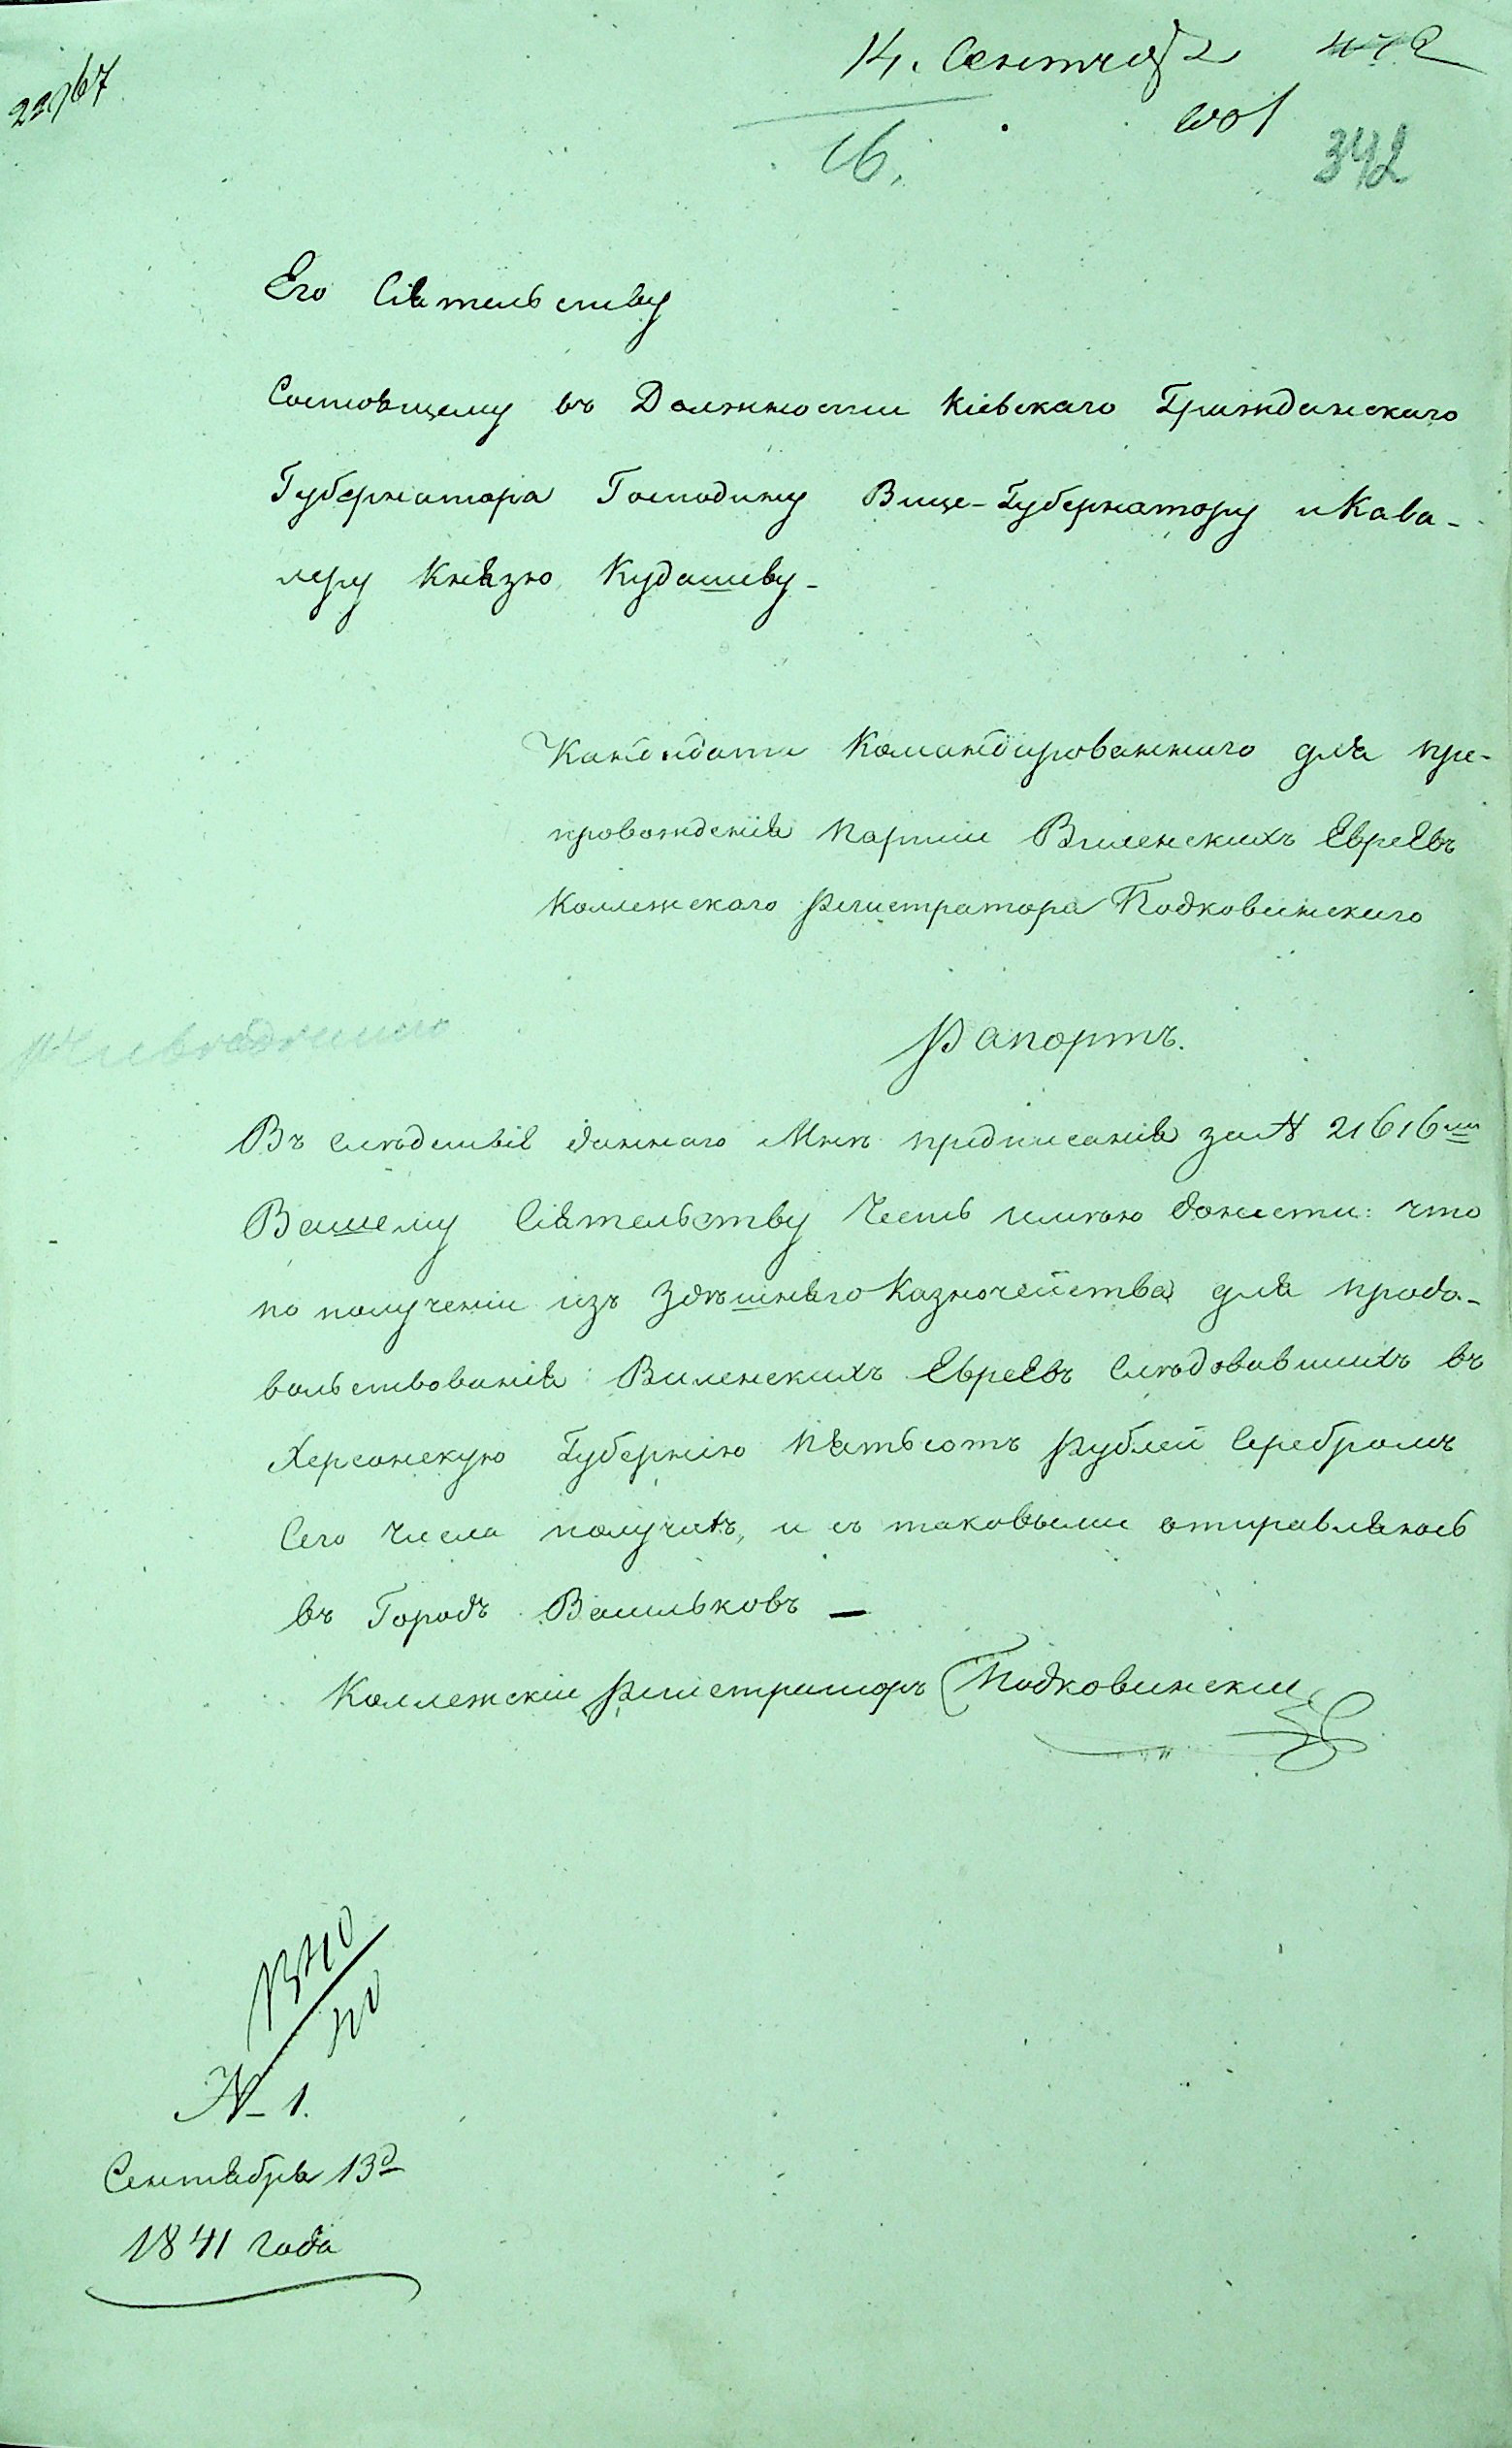 22767
14. Сентяб
16.
342
Его Сіятельству
Состоящему въ Должности Кіевскаго Гражданскаго
Губернатора Господину Вице-Губернатору и Кава-
леру Князю Кудашеву-
Кандидата Командированнаго для пре-
провожденія Партіи Виленскихъ Евреевъ
Коллежскаго Регистратора Подковинскаго
Рапортъ.
Въ слѣдствіе даннаго Мнѣ предписанія за № 21616мъ
Вашему Сіятельству Честь имѣю донести: что
по полученіи изъ Здѣшняго Казначейства для продо-
вольствованія Виленскихъ Евреевъ Слѣдовавшихъ въ
Херсонскую Губернію Пятьсотъ Рублей Серебромъ
Сего числа получилъ, и съ таковыми отправляюсь
въ Городъ Васильковъ —
Коллежскій Регистраторъ Подковинскій
№ 1.
Сентября 13д
1841 года